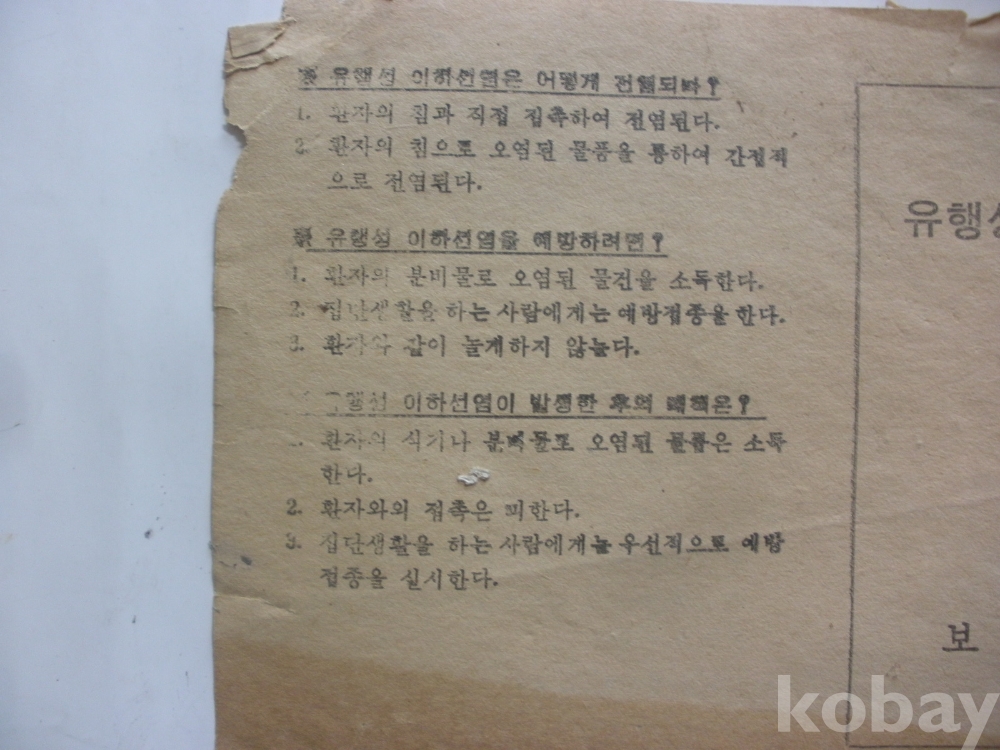 ※ 유행성 이하선염은 어떻게 전염되나?
1. 환자의 침과 직접 접촉하여 전염된다.
2. 환자의 침으로 오염된 물품을 통하여 간접적
으로 전염된다.
※ 유행성 이하선염을 예방하려면?
1. 환자의 분비물로 오염된 물건을 소독한다.
2. 집단생활을 하는 사람에게는 예방접종을 한다.
3. 환자와 같이 놀게하지 않는다.
유행성 이하선염이 발생한 후의 대책은?
환자의 식기나 분비물로 오염된 물품은 소독
한다.
2. 환자와의 접촉은 피한다.
3. 집단생활을 하는 사람에게는 우선적으로 예방
접종을 실시한다.
유행성
보
kobay